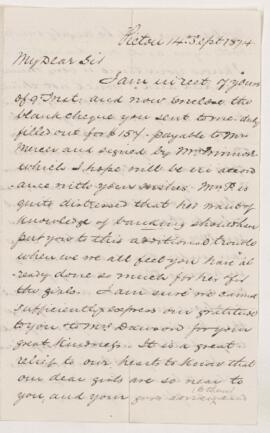 Pictou 14th Sept 1874
My Dear Sir
I am in rect of yours
of 9 Inst, and now enclose the
blank cheque you sent to me duly
filled out for $157. payable to Mrs
Mercer and signed by Mrs Primrose
which I hope will be in accord
ance with your wishes. Mrs P. is
quite distressed that her want of
knowledge of banking should have
put you to this additional trouble
when we all feel you have al
ready done so much for her & for
the girls. I am sure we cannot
sufficiently express our gratitude
to you & to Mrs Dawson for your
great kindness. It is a great
relief to our hearts to know that
our dear girls are so near to
you, and your